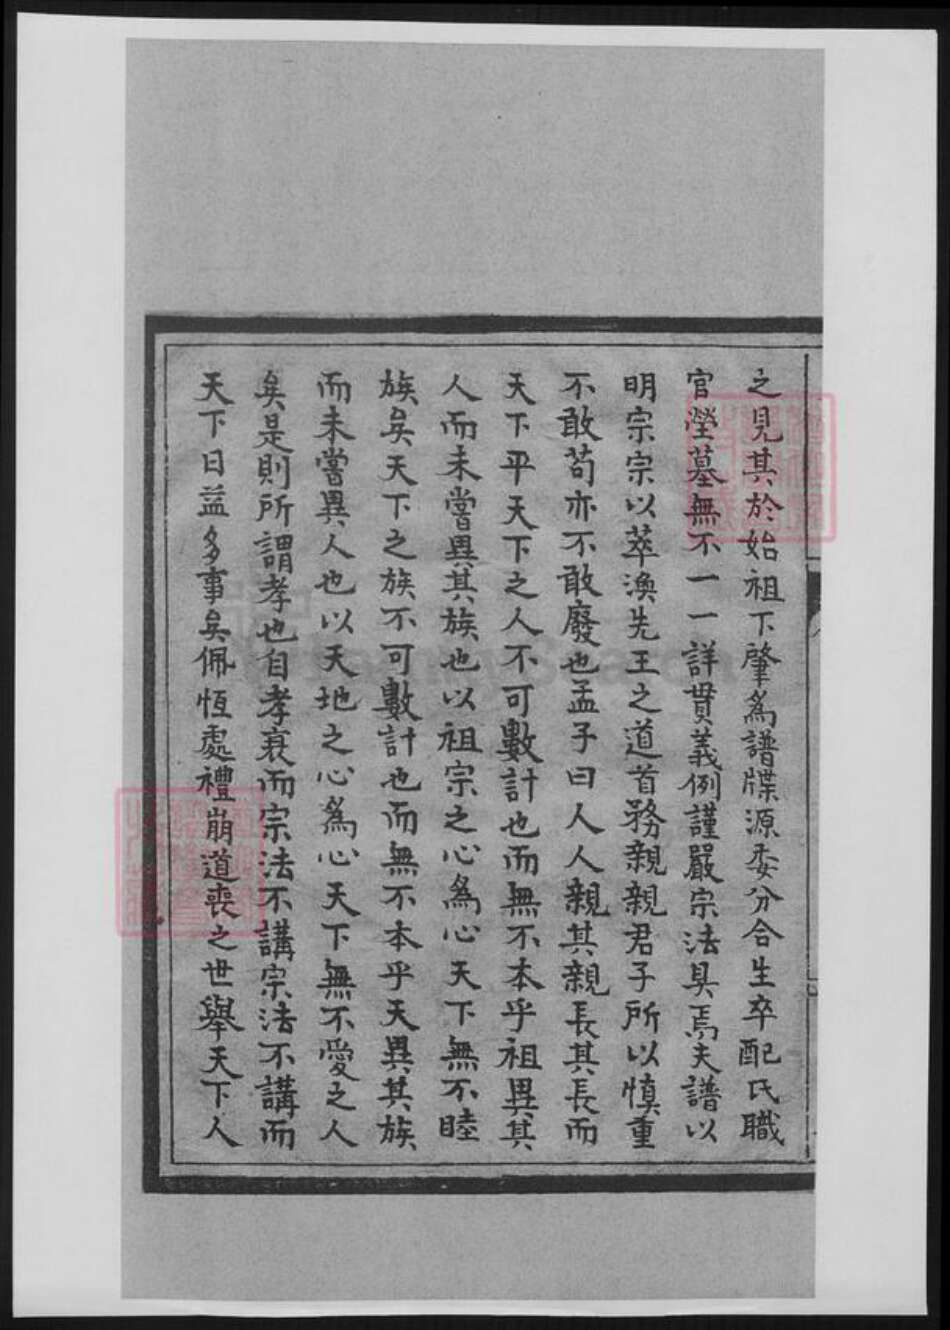 之見其於始祖下肇爲譜牒源委分合生卒配氏職
官塋墓無不一一詳貫義例謹嚴宗法具焉夫譜以
明宗宗以萃渙先王之道首務親親君子所以慎重
不敢苟亦不敢廢也孟子曰人人親其親長其長而
天下平天下之人不可數計也而無不本乎祖異其
人而未嘗異其族也以祖宗之心爲心天下無不睦
族矣天下之族不可數計也而無不本乎天異其族
而未嘗異人也以天地之心爲心天下無不愛之人
矣是則所謂孝也自孝衰而宗法不講宗法不講而
天下日益多事矣佩恆處禮崩道喪之世舉天下人